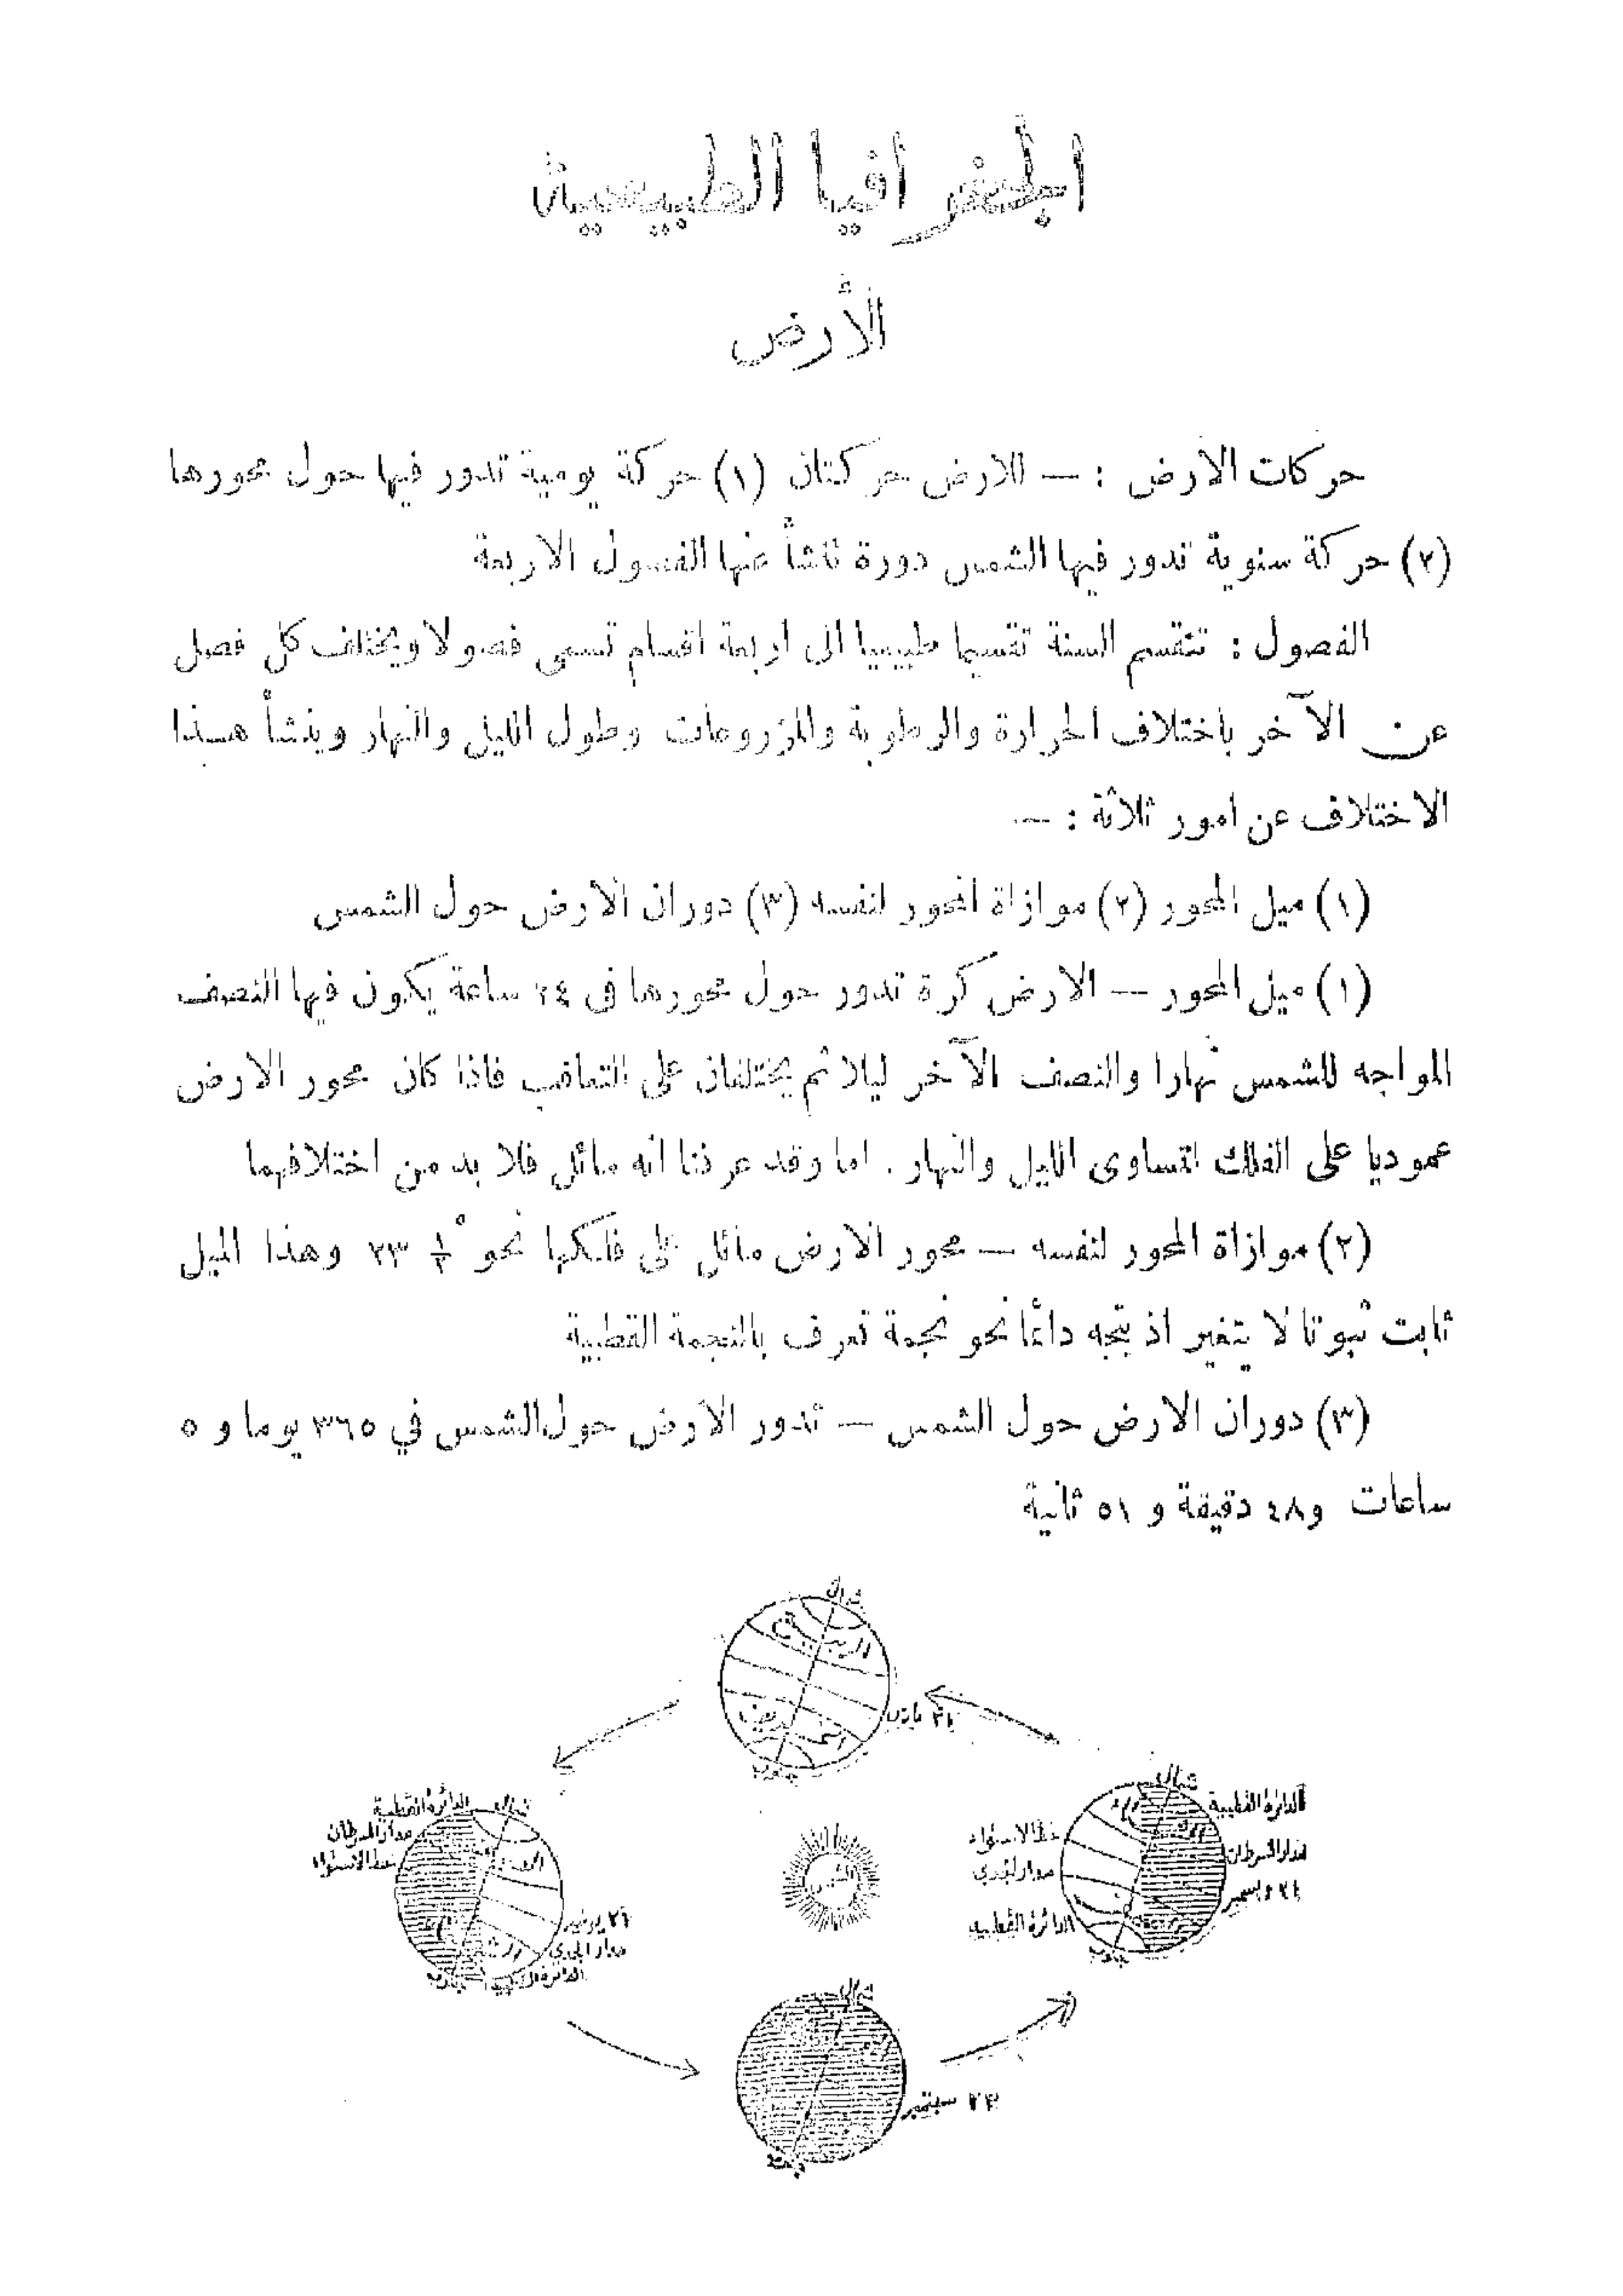 الجغرافيا الطبيعية
الأرض
حركات الارض : — للارض حركتان (١) حركة يومية تدور فيها حول محورها
(٢) حركة سنوية تدور فيها الشمس دورة تنشأ عنها الفصول الاربعة
الفصول : تنقسم السنة تقسيما طبيعيا الى اربعة اقسام تسمى فصولا ويختلف كل فصل
عن الآخر باختلاف الحرارة والرطوبة والمزروعات وطول الليل والنهار وينشأ هذا
الاختلاف عن امور ثلاثة : —
(١) ميل المحور (٢) موازاة المحور لنفسه (٣) دوران الارض حول الشمس
(١) ميل المحور — الارض كرة تدور حول محورها فى ٢٤ ساعة يكون فيها النصف
المواجه للشمس نهارا والنصف الآخر ليلا ثم يختلفان على التعاقب فاذا كان محور الارض
عموديا على الفلك لتساوى الليل والنهار . اما وقد عرفنا انه مائل فلا بد من اختلافهما
(٢) موازاة المحور لنفسه — محور الارض مائل على فلكها نحو ½ ٢٣° وهذا الميل
ثابت ثبوتا لا يتغير اذ يتجه دائما نحو نجمة تعرف بالنجمة القطبية
(٣) دوران الارض حول الشمس — تدور الارض حول الشمس في ٣٦٥ يوما و ٥
ساعات و٤٨ دقيقة و ٥١ ثانية
شمال
الربيع
الخريف
٢١ مارس
جنوب
شمال
الدائرة القطبية
مدار السرطان
خط الاستواء
٢١ يونيه
مدار الجدي
الدائرة القطبية
جنوب
الشمس
شمال
الدائرة القطبية
خط الاستواء
مدار السرطان
مدار الجدي
٢١ ديسمبر
الدائرة القطبية
جنوب
شمال
٢٣ سبتمبر